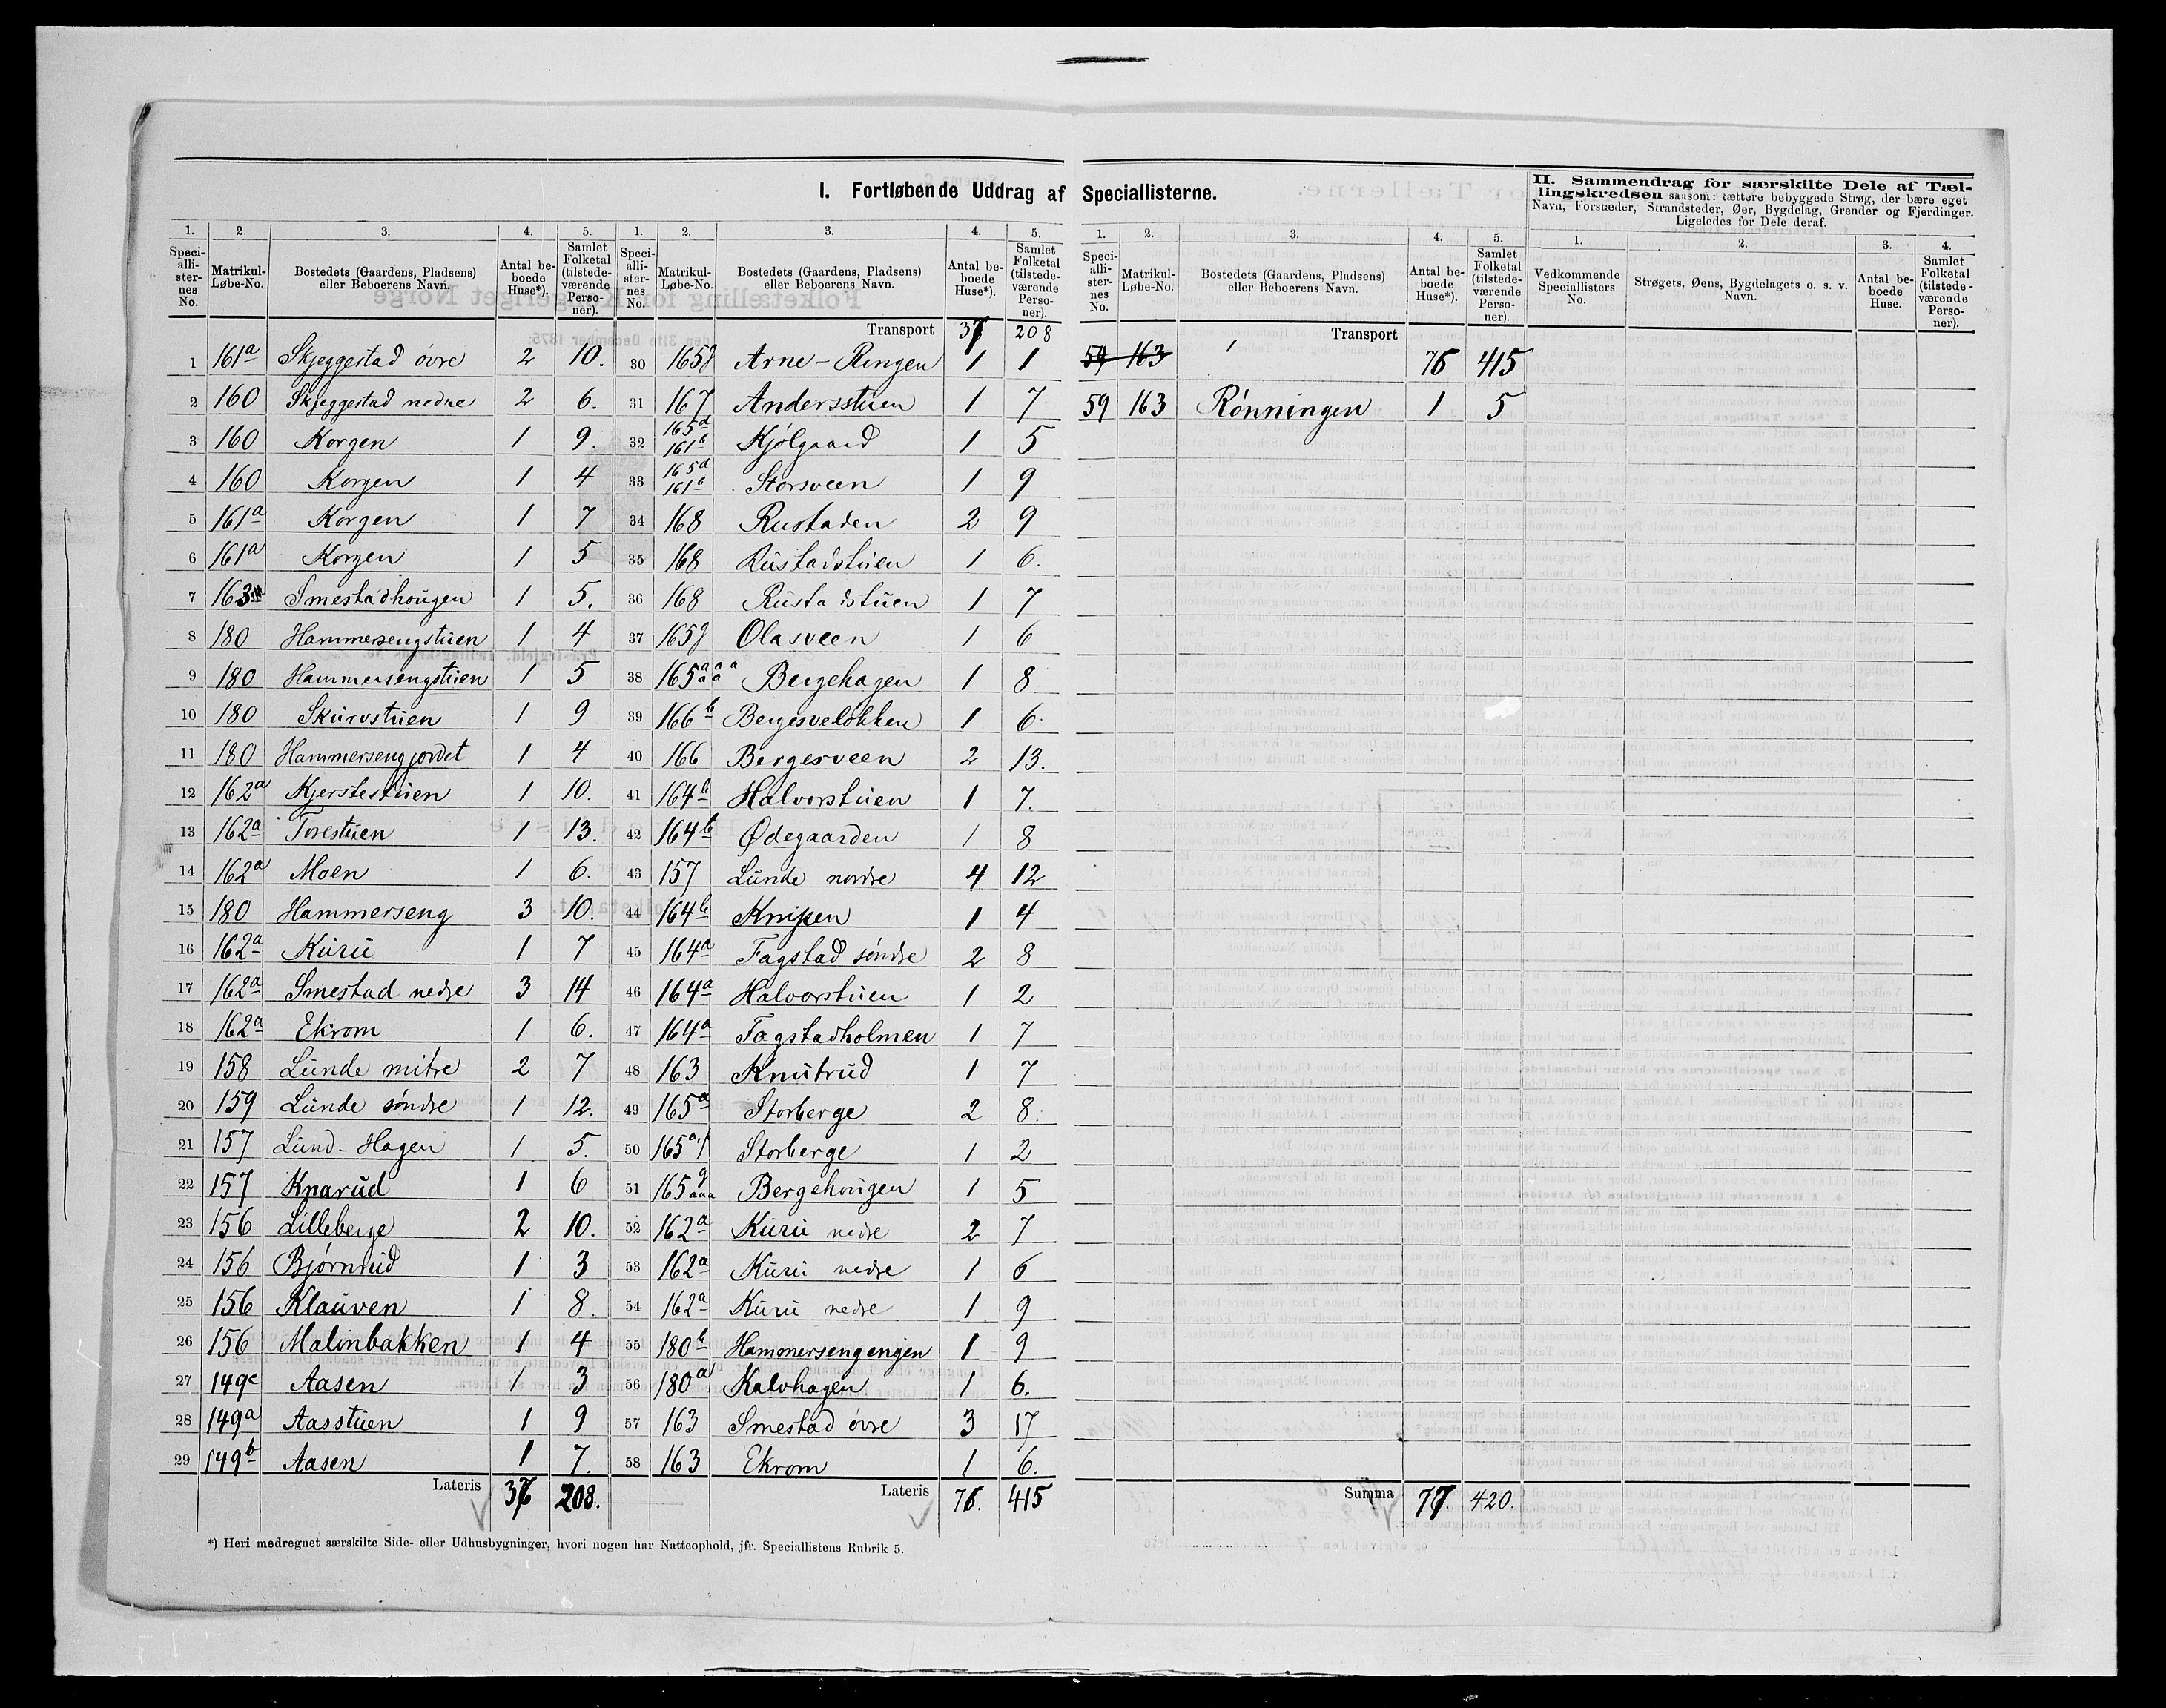 I. Fortløbende Uddrag af Speciallisterne.
II. Sammendrag for særskilte Dele af Tæl-
lingskredsen saasom: tættere bebyggede Strøg, der bære eget
Navn, Forstæder, Strandsteder, Øer, Bygdelag, Grender og Fjerdinger.
Ligeledes for Dele deraf.
1. 2. 3. 4. 5.
Speci-alli-ster-nes No. Matrikul-Løbe-No. Bostedets (Gaardens, Pladsens) eller Beboerens Navn. Antal be-boede Huse*). Samlet Folketal (tilstede-værende Perso-ner).
1 161a Skjeggestad övre 2 10.
2 160 Skjeggestad nedre 2 6.
3 160 Korgen 1 9.
4 160 Korgen 1 4
5 161a Korgen 1 7
6 161a Korgen 1 5
7 163 Smestadhougen 1 5.
8 180 Hammersengstuen 1 4
9 180 Hammersengstuen 1 5
10 180 Skurvstuen 1 9
11 180 Hammersengjordet 1 4
12 162a Kjerstestuen 1 10.
13 162a Torestuen 1 13.
14 162a Moen 1 6.
15 180 Hammerseng 3 10.
16 162a Kuru 1 7
17 162a Smestad nedre 3 14
18 162a Ekrom 1 6.
19 158 Lunde mitre 2 7
20 159 Lunde söndre 1 12.
21 157 Lund-Hagen 1 5.
22 157 Knarud 1 6
23 156 Lilleberge 2 10.
24 156 Bjørnrud 1 3
25 156 Klauven 1 8.
26 156 Malinbakken 1 4
27 149c Aasen 1 3
28 149a Aasstuen 1 9
29 149b Aasen 1 7.
Lateris 208.
1. 2. 3. 4. 5.
Speci-alli-ster-nes No. Matrikul-Løbe-No. Bostedets (Gaardens, Pladsens) eller Beboerens Navn. Antal be-boede Huse*). Samlet Folketal (tilstede-værende Perso-ner).
Transport 208
30 165g Arne-Ringen 1 1
31 167 Andersstuen 1 7
32 165d 161b Kjølgaard 1 5
33 165d 161b Storsveen 1 9
34 168 Rustaden 2 9
35 168 Rustadstuen 1 6.
36 168 Rustadstuen 1 7
37 165g Olasveen 1 6
38 165 Bergehagen 1 8
39 166b Bergesveløkken 1 6.
40 166 Bergesveen 2 13.
41 164b Halvorstuen 1 7.
42 164b Ødegaarden 1 8
43 157 Lunde nordre 4 12
44 164b Knipen 1 4
45 164a Fagstad söndre 2 8
46 164a Halvorstuen 1 2
47 164a Fagstadholmen 1 7
48 163 Knutrud 1 7
49 165a Storberge 2 8.
50 165a Storberge 1 2
51 165 Bergehougen 1 5
52 162a Kuru nedre 2 7
53 162a Kuru nedre 1 6
54 162a Kuru nedre 1 9
55 180b Hammersengengen 1 9
56 180a Kalvhagen 1 6.
57 163 Smestad övre 3 17
58 163 Ekrom 1 6.
Lateris 76. 415
1. 2. 3. 4. 5.
Speci-alli-ster-nes No. Matrikul-Løbe-No. Bostedets (Gaardens, Pladsens) eller Beboerens Navn. Antal be-boede Huse*). Samlet Folketal (tilstede-værende Perso-ner).
Transport
59 163 1 76 415
59 163 Rönningen 1 5
Summa 77. 420.
1. 2. 3. 4.
Vedkommende Speciallisters No. Strøgets, Øens, Bygdelagets o. s. v. Navn. Antal be-boede Huse. Samlet Folketal (tilstede-værende Perso-ner).
*) Heri medregnet særskilte Side- eller Udhusbygninger, hvori nogen har Natteophold, jfr. Speciallistens Rubrik 5.